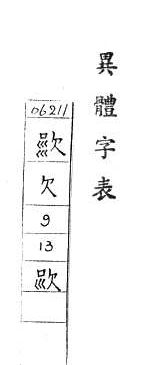 異體字表
06211
欠
9
13